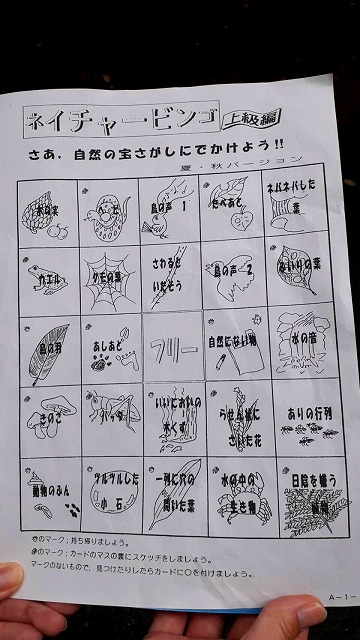 ネイチャービンゴ 上級編
さあ，自然の宝さがしにでかけよう!!
夏・秋バージョン
木の実
鳥の声 1
たべあと
ネバネバした
葉
カエル
クモの巣
さわると
いたそう
鳥の声 2
鳥の羽
あしあと
フリー
自然にない物
水の音
きのこ
バッタ
いいにおいの
木くず
らせん状に
さいた花
ありの行列
動物のふん
ツルツルした
小石
一列に穴の
開いた葉
水の中の
生き物
日陰を嫌う
植物
のマーク；持ち帰りましょう。
のマーク：カードのマスの裏にスケッチをしましょう。
マークのないもので、見つけたりしたらカードに○を付けましょう。
A-1-